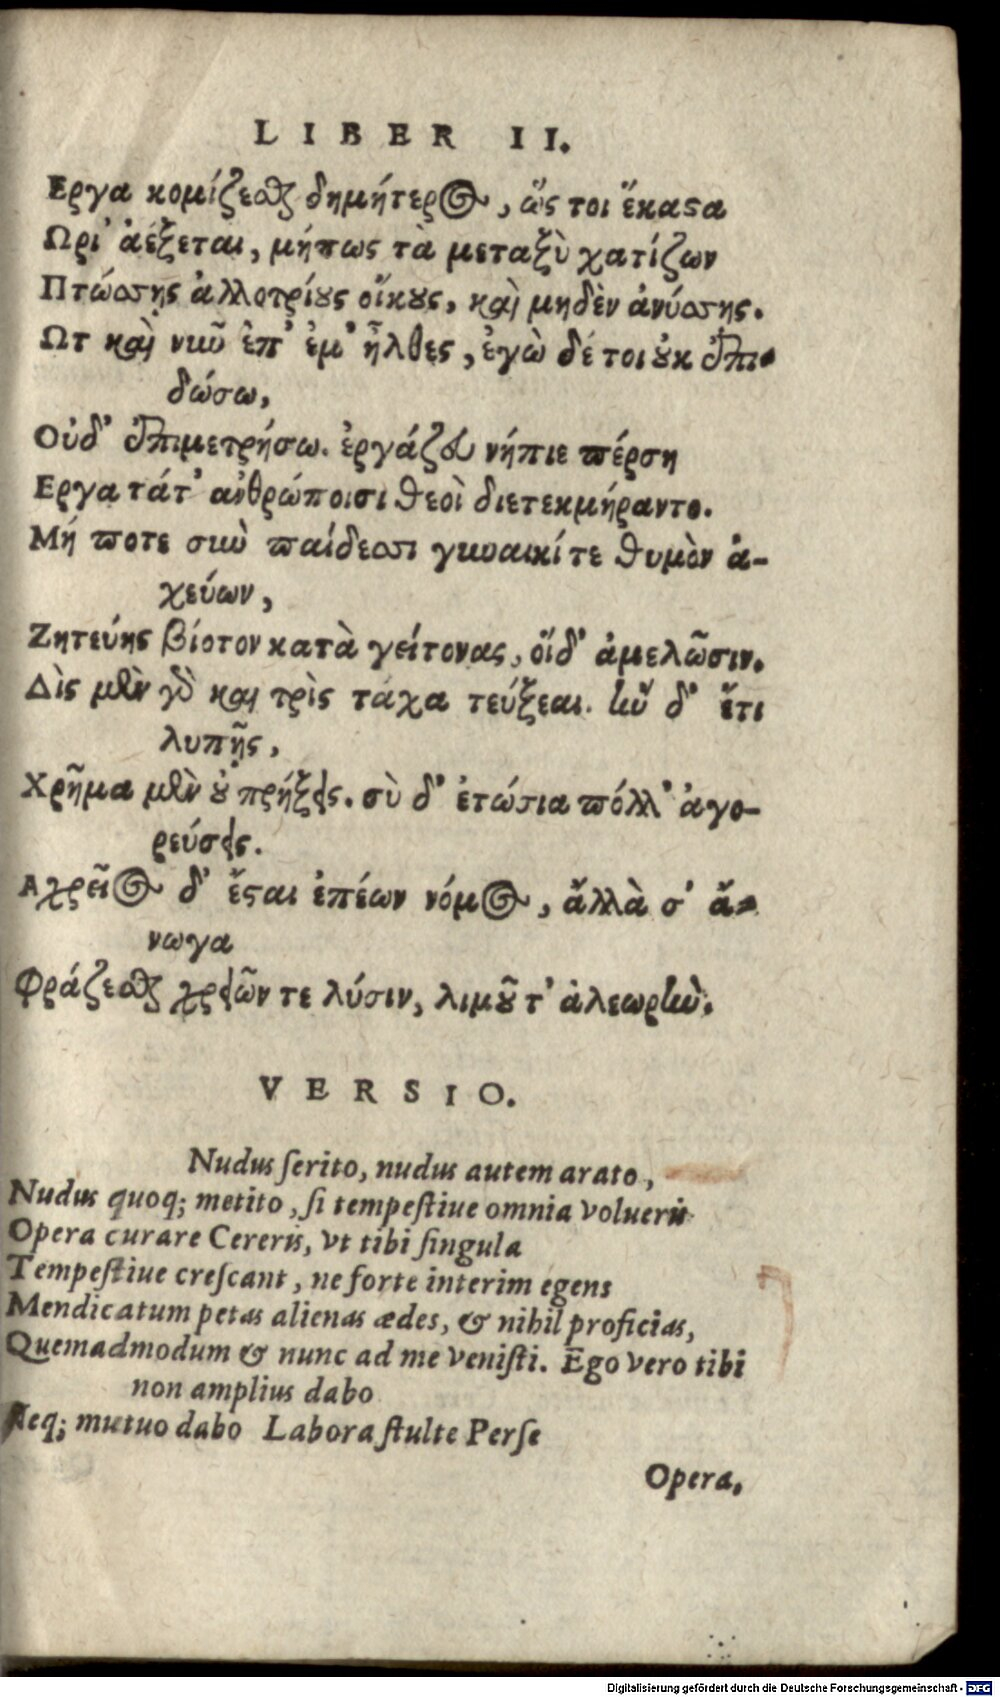 LIBER II.
Εργα κομίζεσθαι δημήτερος, ὥς τοι ἕκαστα
Ωρι' ἀέξεται, μήπως τὰ μεταξὺ χατίζων
Πτώσσης ἀλλοτρίους οἴκους, καὶ μηδὲν ἀνύσσης.
Ως καὶ νῦν ἐπ' ἐμ' ἦλθες, ἐγὼ δέ τοι οὐκ ἐπι-
δώσω,
Οὐδ' ἐπιμετρήσω. ἐργάζευ νήπιε πέρση
Εργα τάτ' ἀνθρώποισι θεοὶ διετεκμήραντο.
Μή ποτε σὺν παίδεσσι γυναικί τε θυμὸν ἀ-
χεύων,
Ζητεύῃς βίοτον κατὰ γείτονας, οἵδ' ἀμελῶσιν.
Δὶς μὲν γὸ καὶ τρὶς τάχα τεύξεαι. ἢν δ' ἔτι
λυπῇς,
Χρῆμα μὲν οὐ πρήξεις. σὺ δ' ἐτώσια πόλλ' ἀγο-
ρεύσεις.
Αχρεῖος δ' ἔσται ἐπέων νόμος, ἄλλὰ σ' ἄ-
νωγα
Φράζεσθαι χρειῶν τε λύσιν, λιμοῦ τ' ἀλεωρήν.
VERSIO.
Nudus serito, nudus autem arato,
Nudus quoq; metito, si tempestiue omnia volueris
Opera curare Cereris, vt tibi singula
Tempestiue crescant, ne forte interim egens
Mendicatum petas alienas ædes, & nihil proficias,
Quemadmodum & nunc ad me venisti. Ego vero tibi
non amplius dabo
Neq; mutuo dabo Labora stulte Perse
Opera.
Digitalisierung gefördert durch die Deutsche Forschungsgemeinschaft - DFG